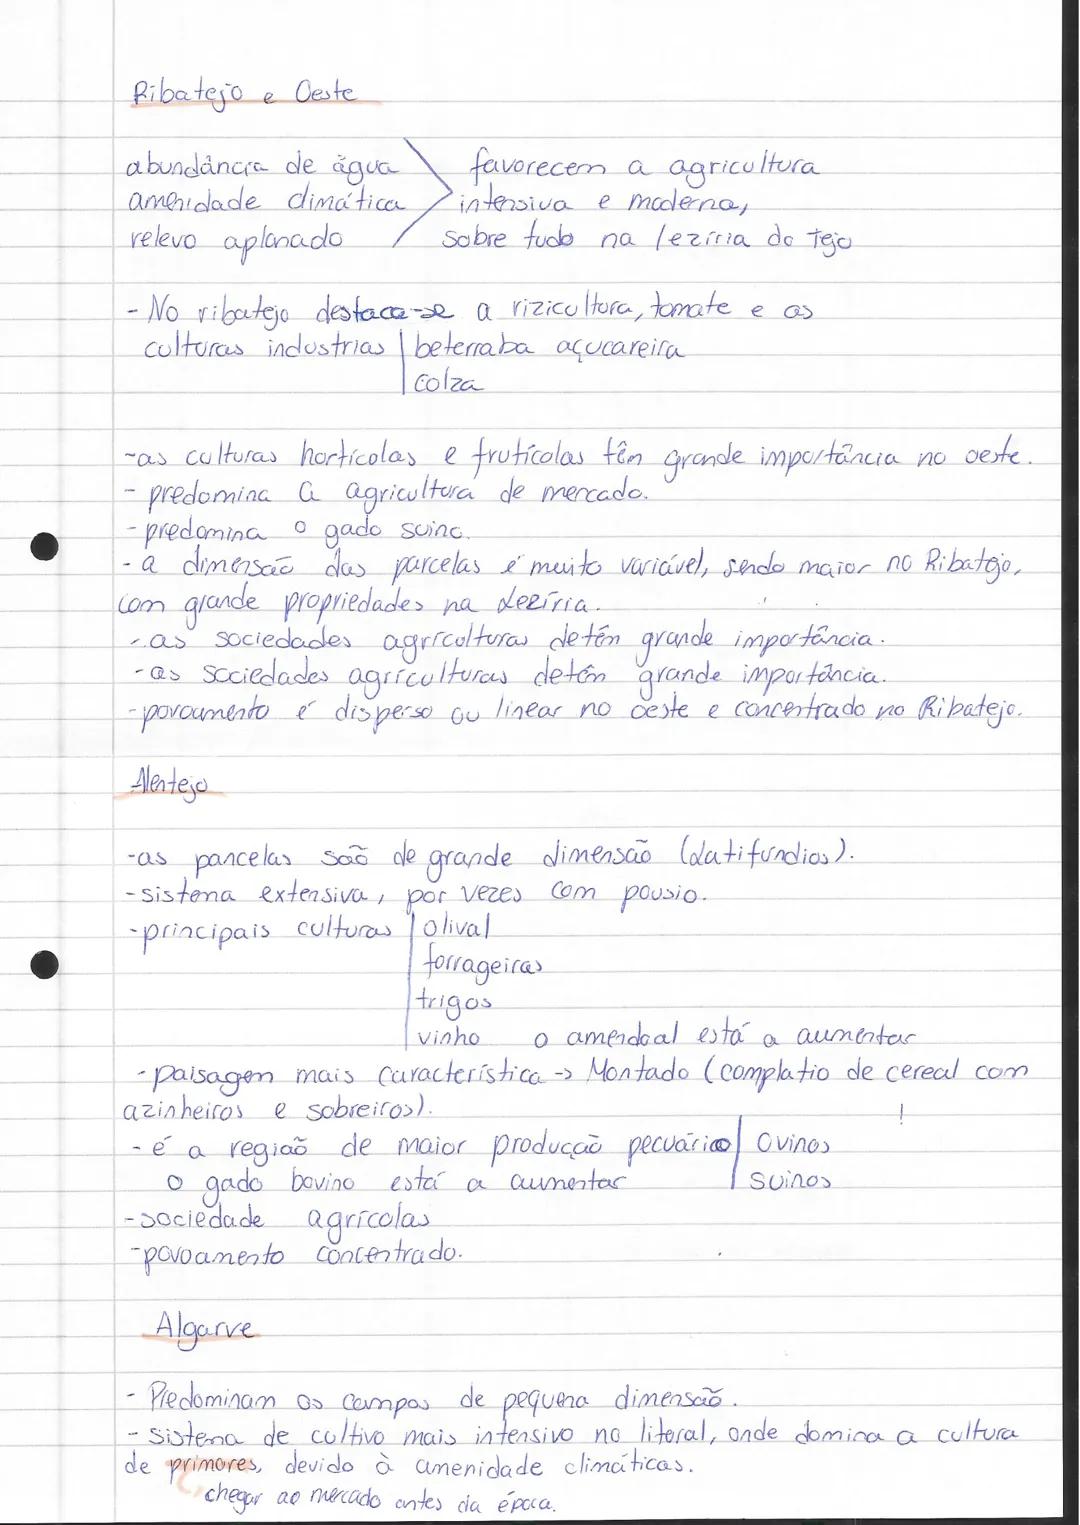 Ribatejo e Oeste
abundância de água
amenidade climática
relevo aplanado
favorecem a agricultura
intensiva e moderna,
sobre tudo na lezíria do Tejo
- No ribatejo destaca-se a rizicultura, tomate e as
culturas industrias | beterraba açucareira
| colza
-as culturas hortícolas e frutícolas têm grande importância no oeste.
- predomina a agricultura de mercado.
- predomina o gado suino.
- a dimensão das parcelas é muito variável, sendo maior no Ribatejo,
com grande propriedades na Lezíria.
- as sociedades agriculturas detêm grande importância.
- as sociedades agriculturas detêm grande importância.
- povoamento é disperso ou linear no oeste e concentrado no Ribatejo.
Alentejo
-as parcelas são de grande dimensão (Latifundios).
-sistema extensiva, por vezes com pousio.
-principais culturas | olival
forrageiras
trigos
vinho o amendoal está a aumentar
- paisagem mais característica -> Montado (complatio de cereal com
azinheiros e sobreiros).
- é a região de maior producção pecuária | Ovinos
o gado bovino está a aumentar | Suinos
-sociedade agrícolas
-povoamento concentrado.
Algarve
- Predominam os campos de pequena dimensão.
- sistema de cultivo mais intensivo no litoral, onde domina a cultura
de primores, devido à amenidade climáticas.
chegar ao mercado antes da época.